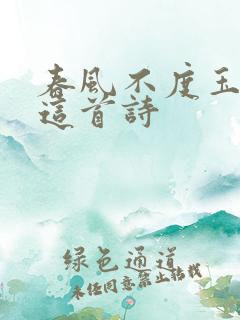 春風不度玉
這首詩
绿色通道
未经同意禁止转载